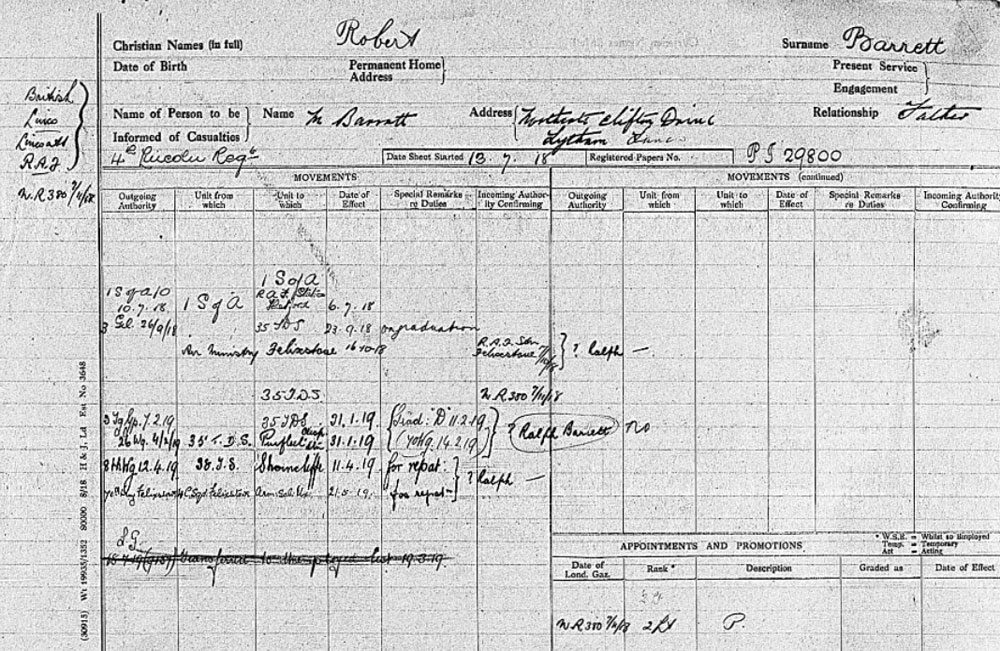 Christian Names (in full) Robert Surname Barrett
Date of Birth Permanent Home Address Present Service Engagement
Name of Person to be Informed of Casualties Name M Barratt Address Clifton Drive Lytham Relationship Father
British
R.A.F
W.R 380 7/11/18
4th Lincoln Regt Date Sheet Started 13.7.18 Registered Papers No. P I 29800
MOVEMENTS
Outgoing Authority Unit from which Unit to which Date of Effect Special Remarks re Duties Incoming Authority Confirming
MOVEMENTS (continued)
Outgoing Authority Unit from which Unit to which Date of Effect Special Remarks re Duties Incoming Authority Confirming
1 S of A
1 S of A 10 10.7.18 1 S of A 6.7.18
26/9/18 35 TDS 23.9.18 on graduation
Air Ministry Felixstowe 16-10-18 R.A.F. Stn Felixstowe } ? Ralph —
35 T.D.S W.R 380 7/11/18
7.2.19 35 TDS 31.1.19 Grad: "D" 11.2.19
26 Wg. 4/2/19 35 T.D.S. Purfleet 31.1.19 14.2.19 } ? Ralph Barrett no
12.4.19 Shorncliffe 11.4.19. for repat: } ? Ralph —
Felixstowe 21.5.19. for repat-
L.G.
transferred to unemployed list 19.3.19.
* W.S.E. = Whilst so Employed
Temp. = Temporary
Act = Acting
APPOINTMENTS AND PROMOTIONS
Date of Lond. Gaz. Rank * Description Graded as Date of Effect
W.R 380 7/11/18 2 Lt P.
(30913) Wt 19935/1352 80000 8/18 H & J, Ld Est. No 3648